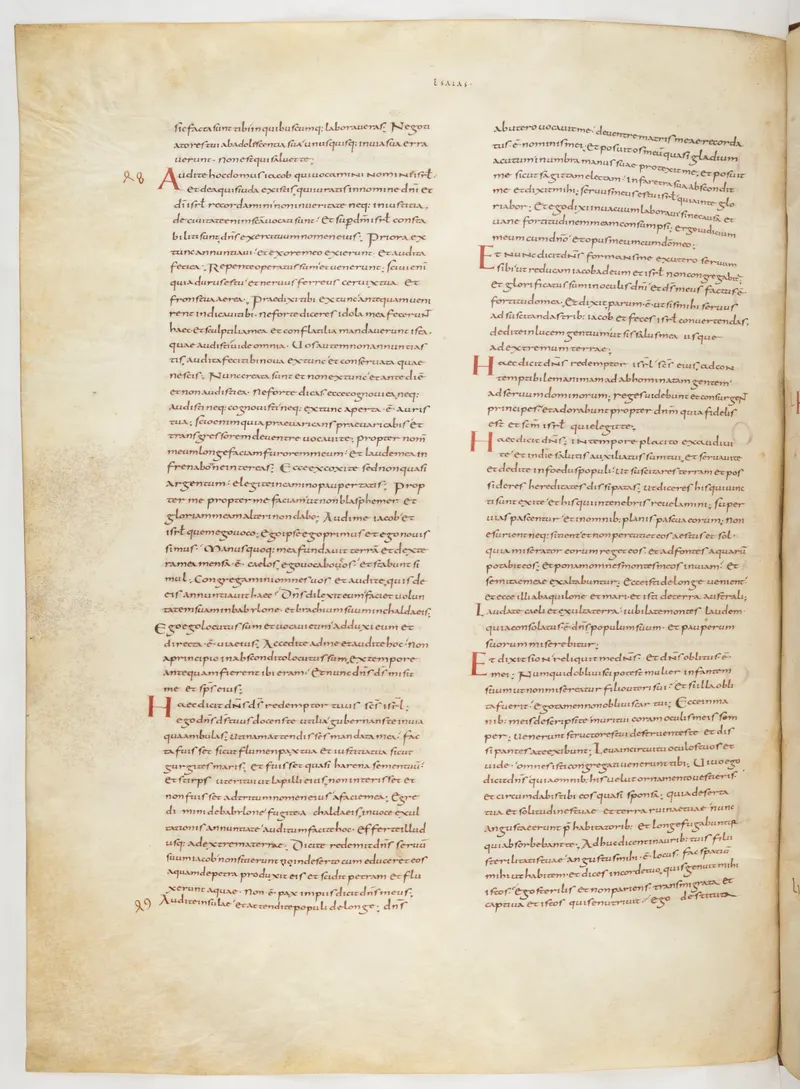 ESAIAS·
sic facta sunt tibi in quibuscumq; laboraueras; Negoti
atores tui ab adolescentia tua unusquisq; in uia sua erra
uerunt· non est qui saluet te;
Audite hoc domus iacob qui uocamini nomine isrl·
et de aqua iuda existis qui iuratis in nomine dni et
di isrl recordamini non in ueritate neq; in iustitia;
de ciuitate enim sca uocati sunt· Et sup dm isrl consta
biliti sunt; dns exercituum nomen eius; Priora ex
tunc annuntiaui· et ex ore meo exierunt· Et audita
feci ea; Repente operatus sum et uenerunt; sciui eni
quia durus es tu· et neruus ferreus ceruix tua· Et
frons tua aerea; Praedixi tibi ex tunc antequam ueni
rent indicaui tibi· ne forte diceres idola mea fecerunt
haec et sculptilia mea et conflatilia mandauerunt ista;
quae audisti uide omnia· Uos autem non annuntias
tis; audita feci tibi noua ex tunc et conseruata quae
nescis; Nunc creata sunt et non ex tunc· et ante die
et non audisti ea· Ne forte dicas ecce cognoui ea; neq;
audisti neq; cognouisti neq; ex tunc aperta ē· auris
tua; scio enim quia praeuaricans praeuaricabis et
transgressorem de uentre uocaui te; propter nom
meum longe faciam furorem meum· et laude mea in
frenabo ne intereas; Ecce excoxi te sed non quasi
argentum· elegi te in camino paupertatis; Prop
ter me propter me faciam ut non blasphemer· Et
gloriam meam alteri non dabo; Audi me iacob· et
isrl quem ego uoco; ego ipse ego primus et ego nouis
simus· Manus quoq; mea fundauit terra et dexte
ra mea mensa ē· caelos; ego uocabo eos· et stabunt si
mul; Congregamini omnes uos· et audite; quis de
eis annuntiauit haec· Dns dilexit eum faciet uolun
tatem suam in babylone· et brachium suum in chaldaeis;
Ego ego locutus sum et uocaui eum· adduxi eum et
directa ē· uia eius; Accedite ad me et audite hoc· non
a principio in abscondito locutus sum; ex tempore
antequam fierent ibi eram· Et nunc dns ds misit
me et sps eius;
Haec dicit dns ds redemptor tuus scs isrl;
ego dns ds tuus docens te utilia gubernans te in uia
qua ambulas; Utinam attendisses mandata mea· fac
ta fuisset sicut flumen pax tua et iustitia tua sicut
gurgites maris; Et fuisset quasi harena semen tuu·
Et stirps uteri tui ut lapilli eius; non interisset et
non fuisset adtritum nomen eius a facie mea; Egre
dimini de babylone fugite a chaldaeis; in uoce exul
tationis annuntiate· auditum facite hoc· efferte illud
usq; ad extrema terrae; Dicite redemit dns seruu
suum iacob· non sitierunt in deserto cum educeret eos
aquam de petra produxit eis et scidit petram et flu
xerunt aquae· Non ē· pax impiis dicit dns meus;
Audite insulae· et attendite populi de longe; dns
ab utero uocauit me· de uentre matris meae recorda
tus ē· nominis mei; et posuit os meu quasi gladium
acutum in umbra manus suae protexit me; et posuit
me sicut sagittam electam· in faretra sua abscondit
me et dixit mihi; seruus meus es tu isrl· quia in te glo
riabor; Et ego dixi in uacuum laboraui sine causa et
uane fortitudinem meam consumpsi; ergo iudicium
meum cum dno· et opus meum cum do meo;
Et nunc dicit dns formans me ex utero seruum
sibi· ut reducam iacob ad eum et isrl non congregabit;
et glorificatus sum in oculis dni et ds meus factus ē·
fortitudo mea; Et dixit parum ē· ut sis mihi seruus
ad suscitandas trib; iacob et feces isrl conuertendas;
dedi te in lucem gentium ut sis salus mea usque
ad extremum terrae;
Haec dicit dns redemptor isrl scs eius; ad con
temptibilem animam ad abhominatam gentem·
ad seruum dominorum; reges uidebunt et consurgent
principes et adorabunt propter dnm quia fidelis
est et scm isrl qui elegit te;
Haec dicit dns; in tempore placito exaudiui
te· et in die salutis auxiliatus sum tui; et seruaui te
et dedi te in foedus populi· Ut suscitares terram et pos
sideres hereditates dissipatas; ut diceres his qui uinc
ti sunt exite· et his qui in tenebris reuelamini; super
uias pascentur· et in omnib; planis pascua eorum; non
esurient neq; sitient et non percutiet eos aestus et sol·
quia miserator eorum reget eos· Et ad fontes aquaru
potabit eos; Et ponam omnes montes meos in uiam· Et
semitae meae exaltabuntur; Ecce isti de longe uenient·
et ecce illi ab aquilone et mari· et isti de terra australi;
Laudate caeli et exulta terra· iubilate montes laudem·
quia consolatus ē· dns populum suum· et pauperum
suorum miserebitur;
Et dixit sion reliquit me dns· Et dns oblitus ē·
mei; Numquid obliuisci potest mulier infantem
suum ut non misereatur filio uteri sui· Et si illa obli
ta fuerit· ego tamen non obliuiscar tui; Ecce in ma
nib; meis descripsi te· muri tui coram oculis meis sem
per; Uenerunt structores tui destruentes te et dis
sipantes a te exibunt; Leua in circuitu oculos tuos et
uide· omnes isti congregati uenerunt tibi; Uiuo ego
dicit dns quia omnib; his uelut ornamento uestieris·
et circumdabis tibi eos quasi sponsa; quia deserta
tua et solitudines tuae et terra ruinae tuae nunc
angusta erunt p habitatorib; Et longe fugabuntur
qui absorbebant te; Adhuc dicent in aurib; tuis filii
sterilitatis tuae· angustus mihi ē· locus fac spatiu
mihi ut habitem· et dices in corde tuo; quis genuit mihi
istos· ego sterilis et non pariens; transmigrata et
captiua et istos quis enutriuit· ego destituta